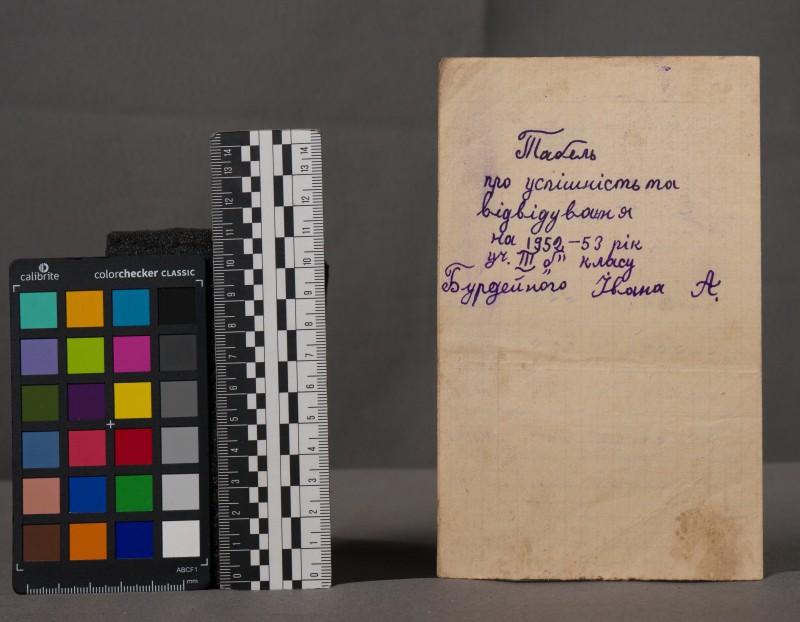 calibrite
colorchecker CLASSIC
ABCF1
mm
0 1 2 3 4 5 6 7 8 9 10 11 12 13 14
0 1 2 3 4 5 6 7 8 9 10 11 12 13 14
Табель
про успішність та
відвідування
на 1952-53 рік
уч. III "б" класу
Бурдейного Івана А.